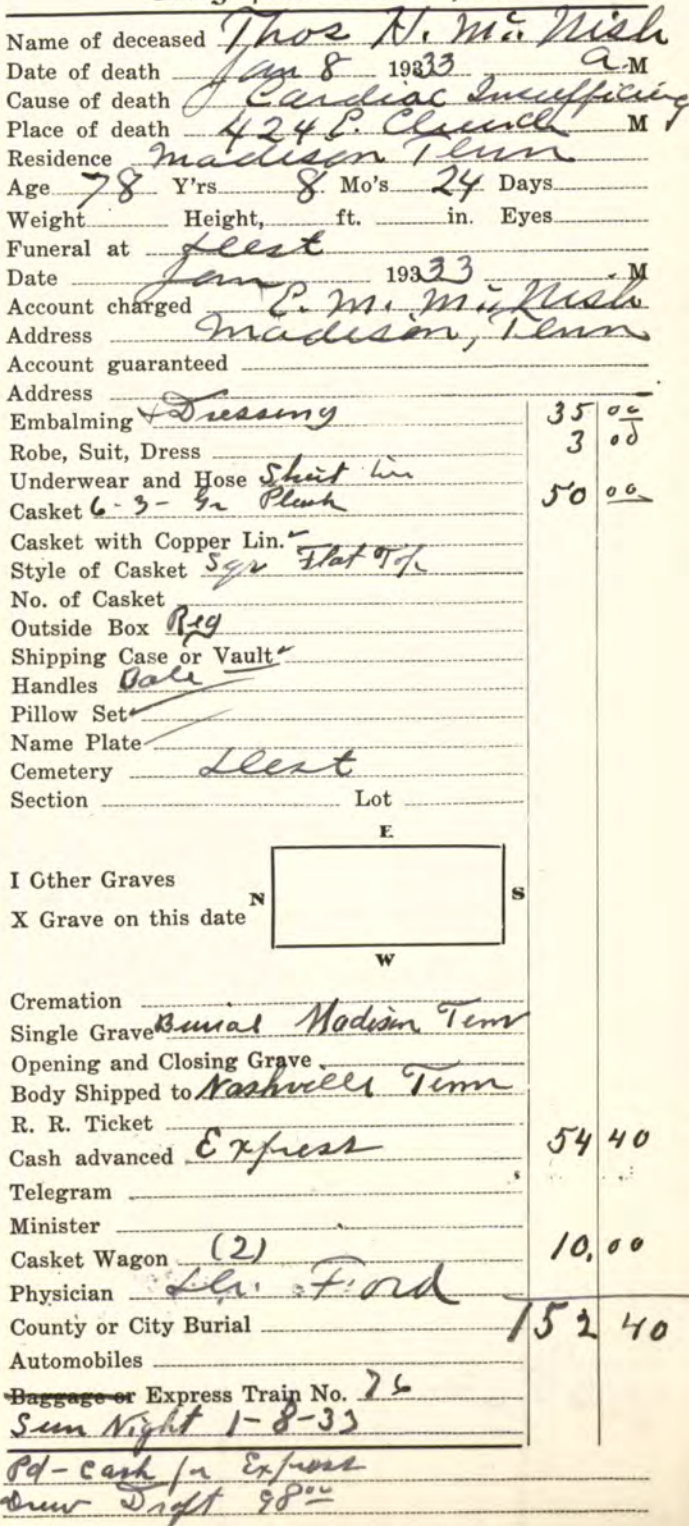 Name of deceased Thos H. Mc. Nish
Date of death Jan 8 1933 33 a. M
Cause of death Cardiac Insufficiency
Place of death 424 E. Church M
Residence Madison Tenn
Age 78 Y'rs 8 Mo's 24 Days
Weight Height, ft. in. Eyes
Funeral at
Date Jan 1933 33 M
Account charged E. M. Mc. Nish
Address Madison, Tenn
Account guaranteed
Address
Embalming + Dressing 35 00
Robe, Suit, Dress 3 00
Underwear and Hose Shirt
Casket 6-3- Gr Plush 50 00
Casket with Copper Lin.
Style of Casket Sqr Flat Top
No. of Casket
Outside Box Reg
Shipping Case or Vault
Handles
Pillow Set
Name Plate
Cemetery
Section Lot
E
I Other Graves
N S
X Grave on this date
W
Cremation
Single Grave Burial Madison Tenn
Opening and Closing Grave
Body Shipped to Nashville Tenn
R. R. Ticket
Cash advanced Express 54 40
Telegram
Minister
Casket Wagon (2) 10.00
Physician Dr. Ford
County or City Burial 152 40
Automobiles
Baggage or Express Train No. 76
Sun Night 1-8-33
Pd - Cash for Express
Drew Draft 98 00